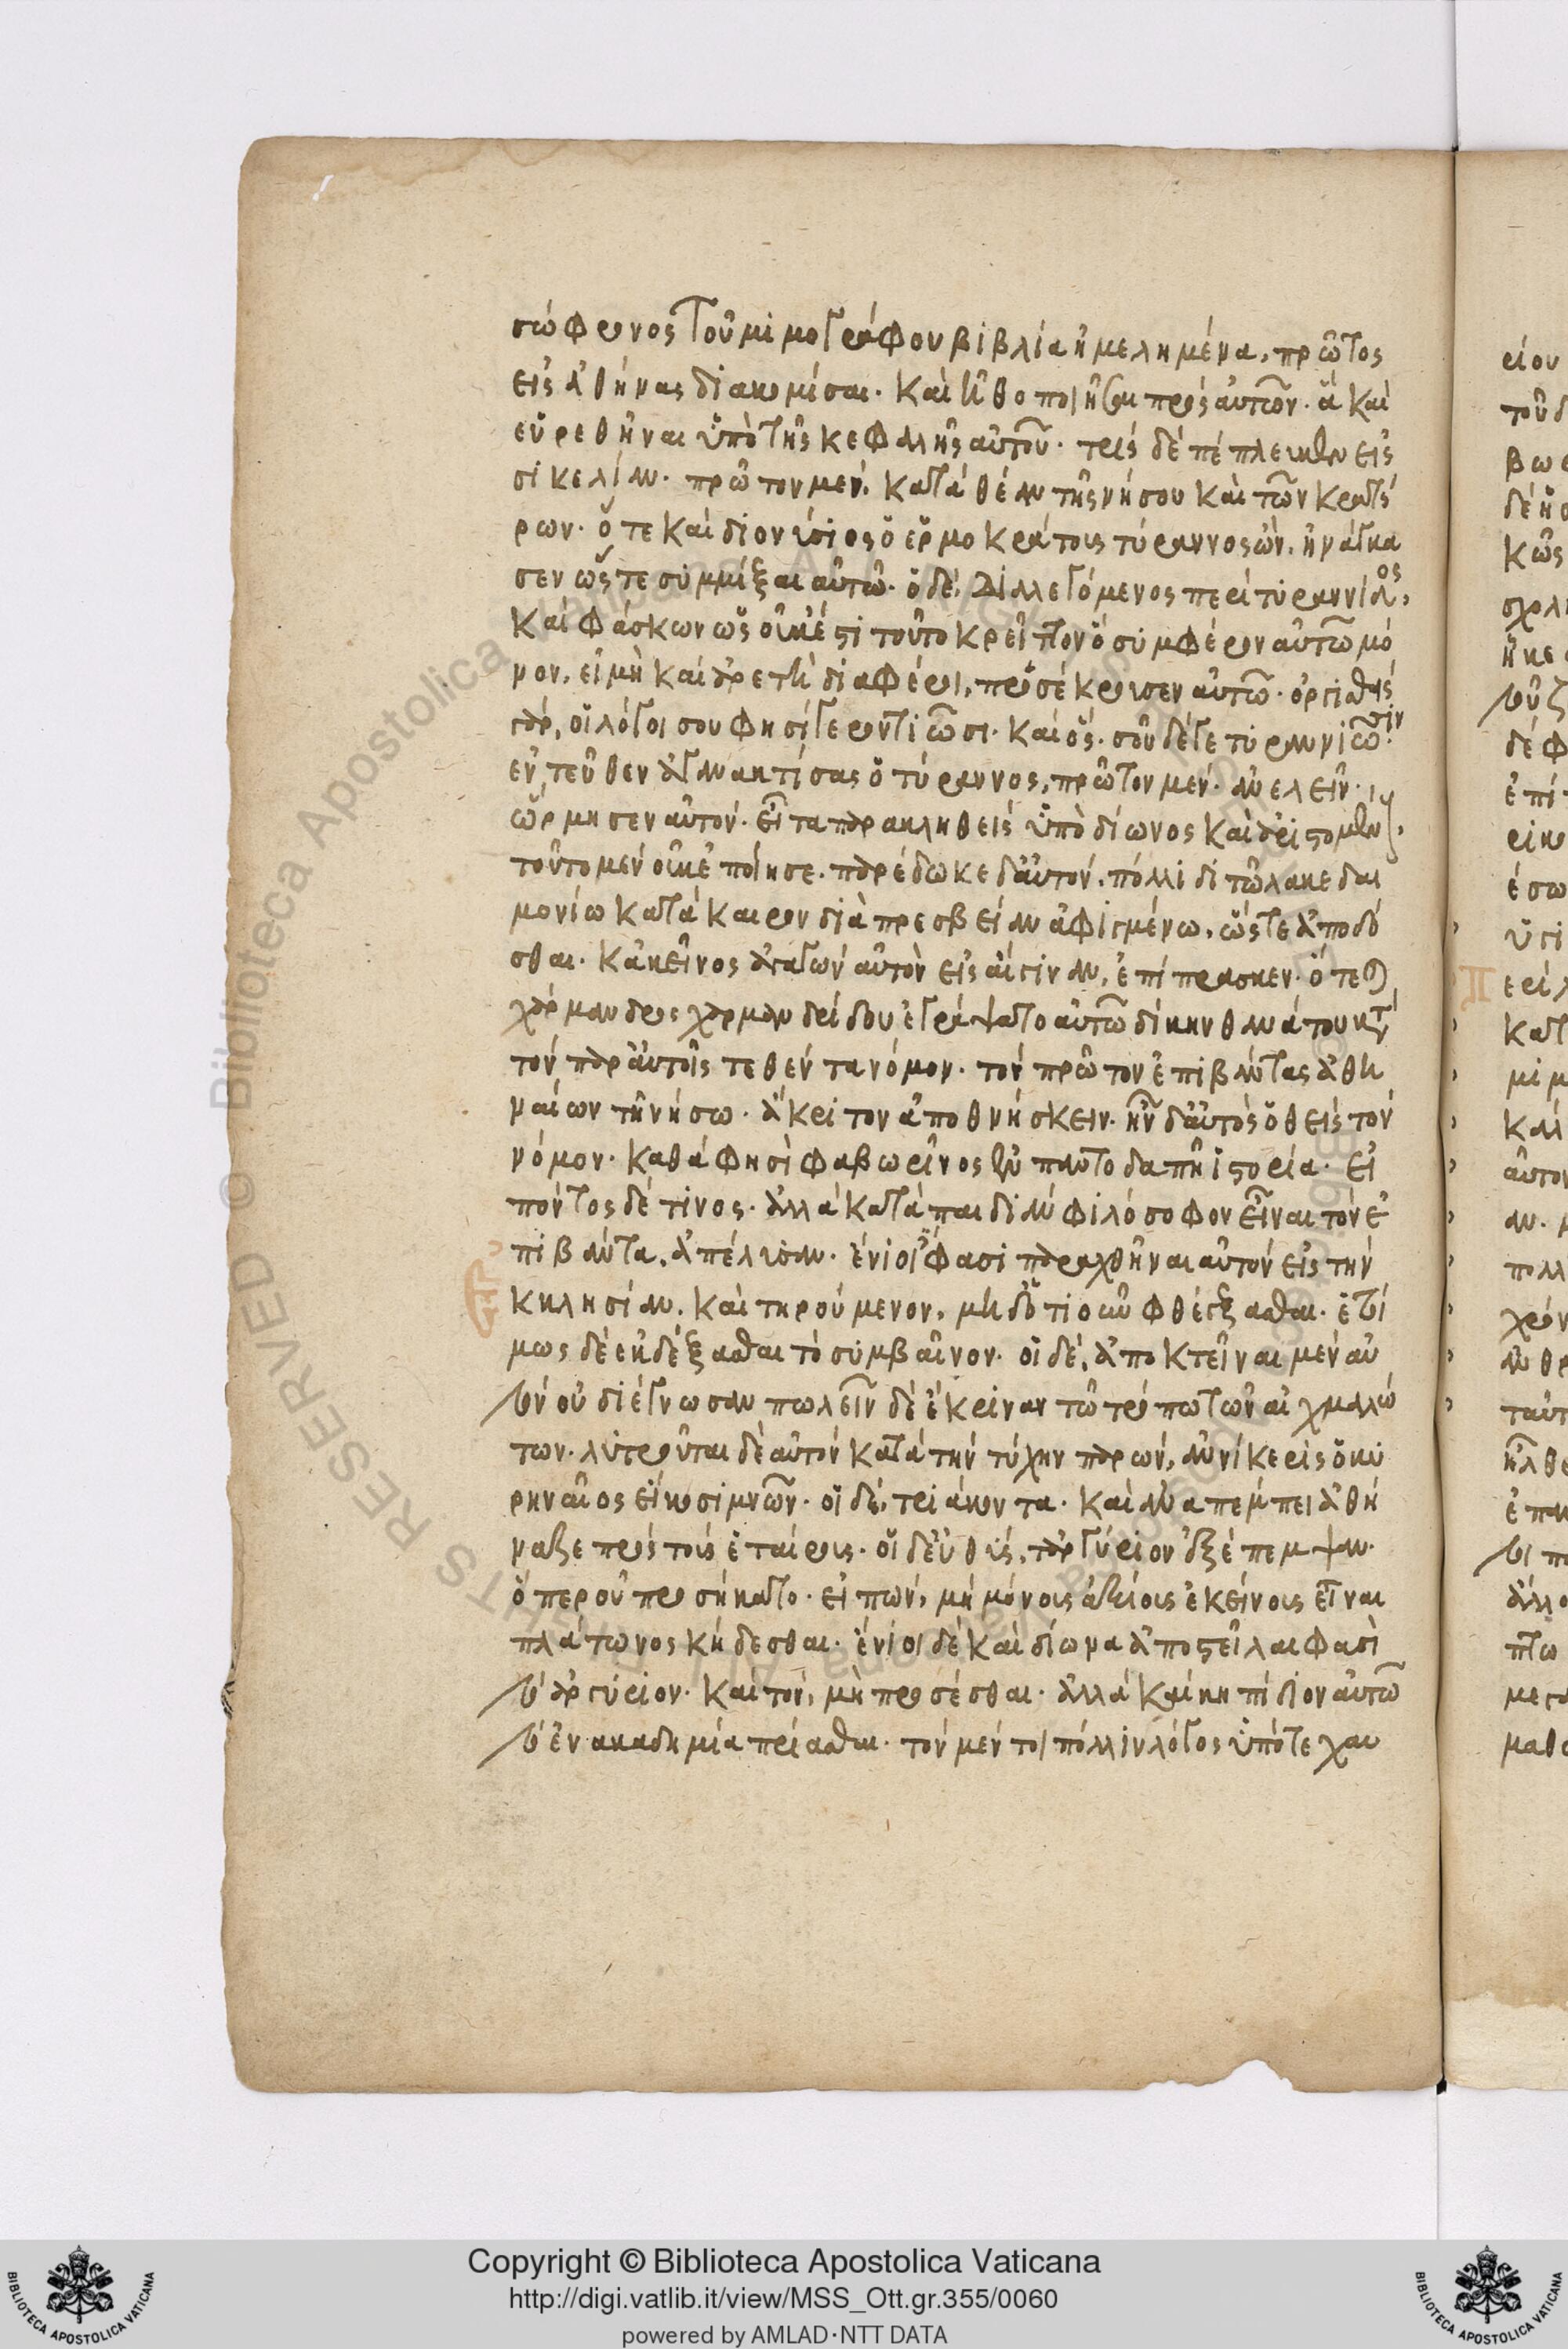 σώφρονος τοῦ μιμογράφου βιβλία ἠμελημένα, πρῶτος
εἰς ἀθήνας διακομίσαι. καὶ ἠθοποιῆσαι πρὸς αὐτὸν. ἃ καὶ
εὑρεθῆναι ὑπὸ τῆς κεφαλῆς αὐτοῦ. τρὶς δὲ πέπλευκεν εἰς
σικελίαν. πρῶτον μὲν, κατὰ θέαν τῆς νήσου καὶ τῶν κρατή
ρων. ὅτε καὶ διονύσιος ὁ ἑρμοκράτους τύραννος ὢν, ἠνάγκα
σεν ὥστε συμμίξαι αὐτῶ. ὁ δὲ, διαλλεγόμενος περὶ τυραννίδος,
καὶ φάσκων ὡς οὐκ ἔστι τοῦτο κρεῖττον ὃ συμφέρον αὐτῶ μό
νον, εἰ μὴ καὶ ἀρετῆ διαφέροι, προσέκρουσεν αὐτῶ. ὀργισθεὶς
γὰρ, οἱ λόγοι σου φησὶ γεροντιῶσι. καὶ ὃς. σοῦ δέ γε τυραννιῶσιν.
ἐντεῦθεν ἀγανακτήσας ὁ τύραννος, πρῶτον μὲν. ἀνελεῖν
ὥρμησεν αὐτόν. εἶτα παρακληθεὶς ὑπὸ δίωνος καὶ ἀριστομένους,
τοῦτο μὲν οὐκ ἐποίησε. παρέδωκε δ' αὐτὸν, πόλλιδι τῶ λακεδαι
μονίω κατὰ καιρὸν διὰ πρεσβείαν ἀφιγμένω, ὥστε ἀποδό
σθαι. κἀκεῖνος ἀγαγὼν αὐτὸν εἰς αἴγιναν, ἐπίπρασκεν. ὅτε
χάρμανδρος χαρμανδρίδου ἐγράψατο αὐτῶ δίκην θανάτου κατὰ
τὸν παρ' αὐτοῖς τεθέντα νόμον. τὸν πρῶτον ἐπιβάντας ἀθη
ναίων τῆ νήσω. ἄκριτον ἀποθνήσκειν. ἦν δ' αὐτὸς ὁ θεὶς τὸν
νόμον. καθά φησὶ φαβωρῖνος ἐν παντοδαπῆ ἱστορία. εἰ
πόντος δέ τινος. ἀλλὰ κατὰ παιδιὰν φιλόσοφον εἶναι τὸν ἐ
πιβάντα, ἀπέλυσαν. ἔνιοι φασὶ παραχθῆναι αὐτὸν εἰς τὴν
κκλησίαν. καὶ τηρούμενον, μηδ' ὁτιοῦν φθέγξασθαι. ἑτοί
μως δὲ ἐκδέξασθαι τὸ συμβαῖνον. οἱ δὲ, ἀποκτεῖναι μὲν αὐ
τὸν οὐ διέγνωσαν πωλεῖν δὲ ἔκριναν τῶ τρόπω τῶν αἰχμαλώ
των. λυτροῦται δὲ αὐτὸν κατὰ τὴν τύχην παρὼν, ἀννίκερις ὁ κυ
ρηναῖος εἴκοσι μνῶν. οἱ δὲ, τριάκοντα. καὶ ἀναπέμπει ἀθή
ναζε πρὸς τοὺς ἑταίρους. οἱ δ' εὐθὺς, τἀργύριον ἐξέπεμψαν.
ὅπερ οὐ προσήκατο. εἰπὼν, μὴ μόνους ἀξίους ἐκείνους εἶναι
πλάτωνος κήδεσθαι. ἔνιοι δὲ καὶ δίωνα ἀποστεῖλαι φασὶ
τὸ ἀργύριον. καὶ τὸν, μὴ προσέσθαι. ἀλλὰ καὶ κηπίδιον αὐτῶ
τὸ ἐν ἀκαδημία πρίασθαι. τὸν μέντοι πόλλιν λόγος ὑπό τε χαυ
Copyright © Biblioteca Apostolica Vaticana
http://digi.vatlib.it/view/MSS_Ott.gr.355/0060
powered by AMLAD·NTT DATA